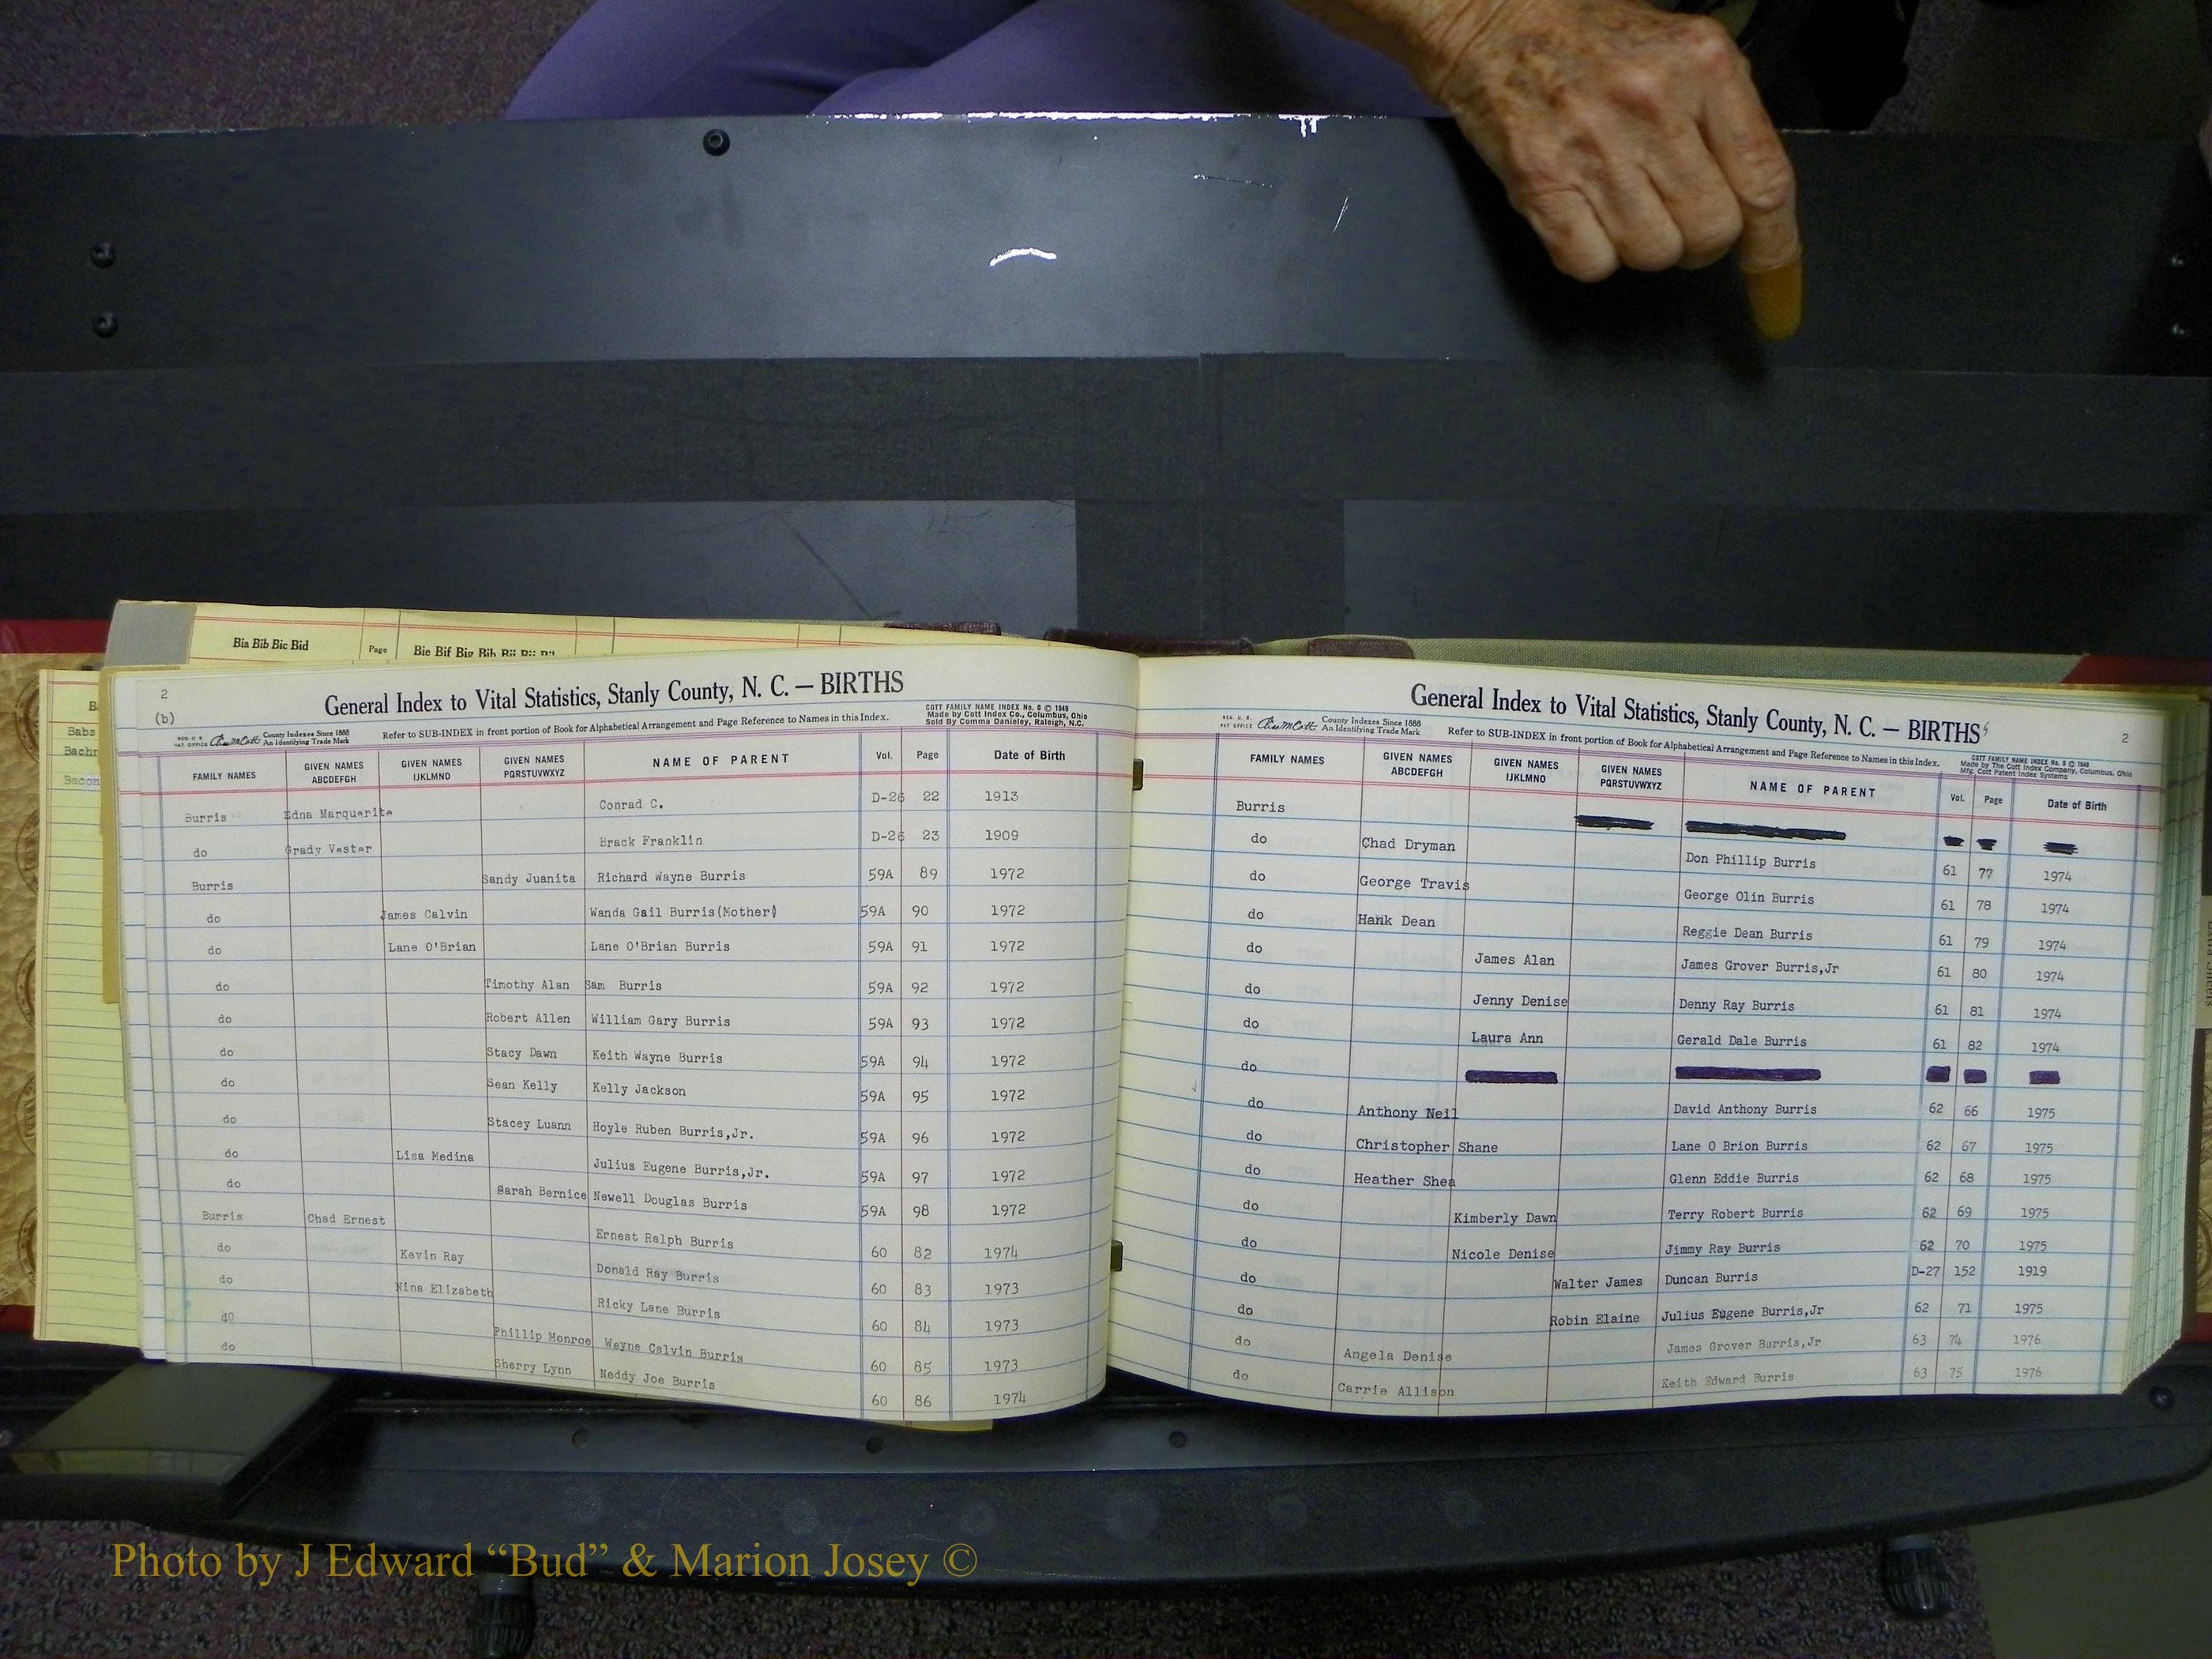 Bia Bib Bic Bid Page Bie Bif Big Bih Bii Bij
Babs
Bacon
2
(b)
General Index to Vital Statistics, Stanly County, N. C. — BIRTHS
COTT FAMILY NAME INDEX No. 8 © 1949
Made by Cott Index Co., Columbus, Ohio
Sold By Comma Danieley, Raleigh, N.C.
REG. U. S. PAT. OFFICE County Indexes Since 1888 An Identifying Trade Mark
Refer to SUB-INDEX in front portion of Book for Alphabetical Arrangement and Page Reference to Names in this Index.
FAMILY NAMES GIVEN NAMES ABCDEFGH GIVEN NAMES IJKLMNO GIVEN NAMES PQRSTUVWXYZ NAME OF PARENT Vol. Page Date of Birth
Burris Edna Marquarita Conrad C. D-26 22 1913
do Grady Vester Brack Franklin D-26 23 1909
Burris Sandy Juanita Richard Wayne Burris 59A 89 1972
do James Calvin Wanda Gail Burris(Mother) 59A 90 1972
do Lane O'Brian Lane O'Brian Burris 59A 91 1972
do Timothy Alan Sam Burris 59A 92 1972
do Robert Allen William Gary Burris 59A 93 1972
do Stacy Dawn Keith Wayne Burris 59A 94 1972
do Sean Kelly Kelly Jackson 59A 95 1972
do Stacey Luann Hoyle Ruben Burris,Jr. 59A 96 1972
do Lisa Medina Julius Eugene Burris,Jr. 59A 97 1972
do Sarah Bernice Newell Douglas Burris 59A 98 1972
Burris Chad Ernest Ernest Ralph Burris 60 82 1974
do Kevin Ray Donald Ray Burris 60 83 1973
do Nina Elizabeth Ricky Lane Burris 60 84 1973
do Phillip Monroe Wayne Calvin Burris 60 85 1973
do Sherry Lynn Neddy Joe Burris 60 86 1974
General Index to Vital Statistics, Stanly County, N. C. — BIRTHS
2
REG. U. S. PAT. OFFICE County Indexes Since 1888 An Identifying Trade Mark
Refer to SUB-INDEX in front portion of Book for Alphabetical Arrangement and Page Reference to Names in this Index.
COTT FAMILY NAME INDEX No. 8 © 1949
Made by The Cott Index Company, Columbus, Ohio
Mfg. Cott Patent Index Systems
FAMILY NAMES GIVEN NAMES ABCDEFGH GIVEN NAMES IJKLMNO GIVEN NAMES PQRSTUVWXYZ NAME OF PARENT Vol. Page Date of Birth
Burris
do Chad Dryman Don Phillip Burris 61 77 1974
do George Travis George Olin Burris 61 78 1974
do Hank Dean Reggie Dean Burris 61 79 1974
do James Alan James Grover Burris,Jr 61 80 1974
do Jenny Denise Denny Ray Burris 61 81 1974
do Laura Ann Gerald Dale Burris 61 82 1974
do
do Anthony Neil David Anthony Burris 62 66 1975
do Christopher Shane Lane O Brion Burris 62 67 1975
do Heather Shea Glenn Eddie Burris 62 68 1975
do Kimberly Dawn Terry Robert Burris 62 69 1975
do Nicole Denise Jimmy Ray Burris 62 70 1975
do Walter James Duncan Burris D-27 152 1919
do Robin Elaine Julius Eugene Burris,Jr 62 71 1975
do Angela Denise James Grover Burris,Jr 63 74 1976
do Carrie Allison Keith Edward Burris 63 75 1976
Photo by J Edward “Bud” & Marion Josey ©